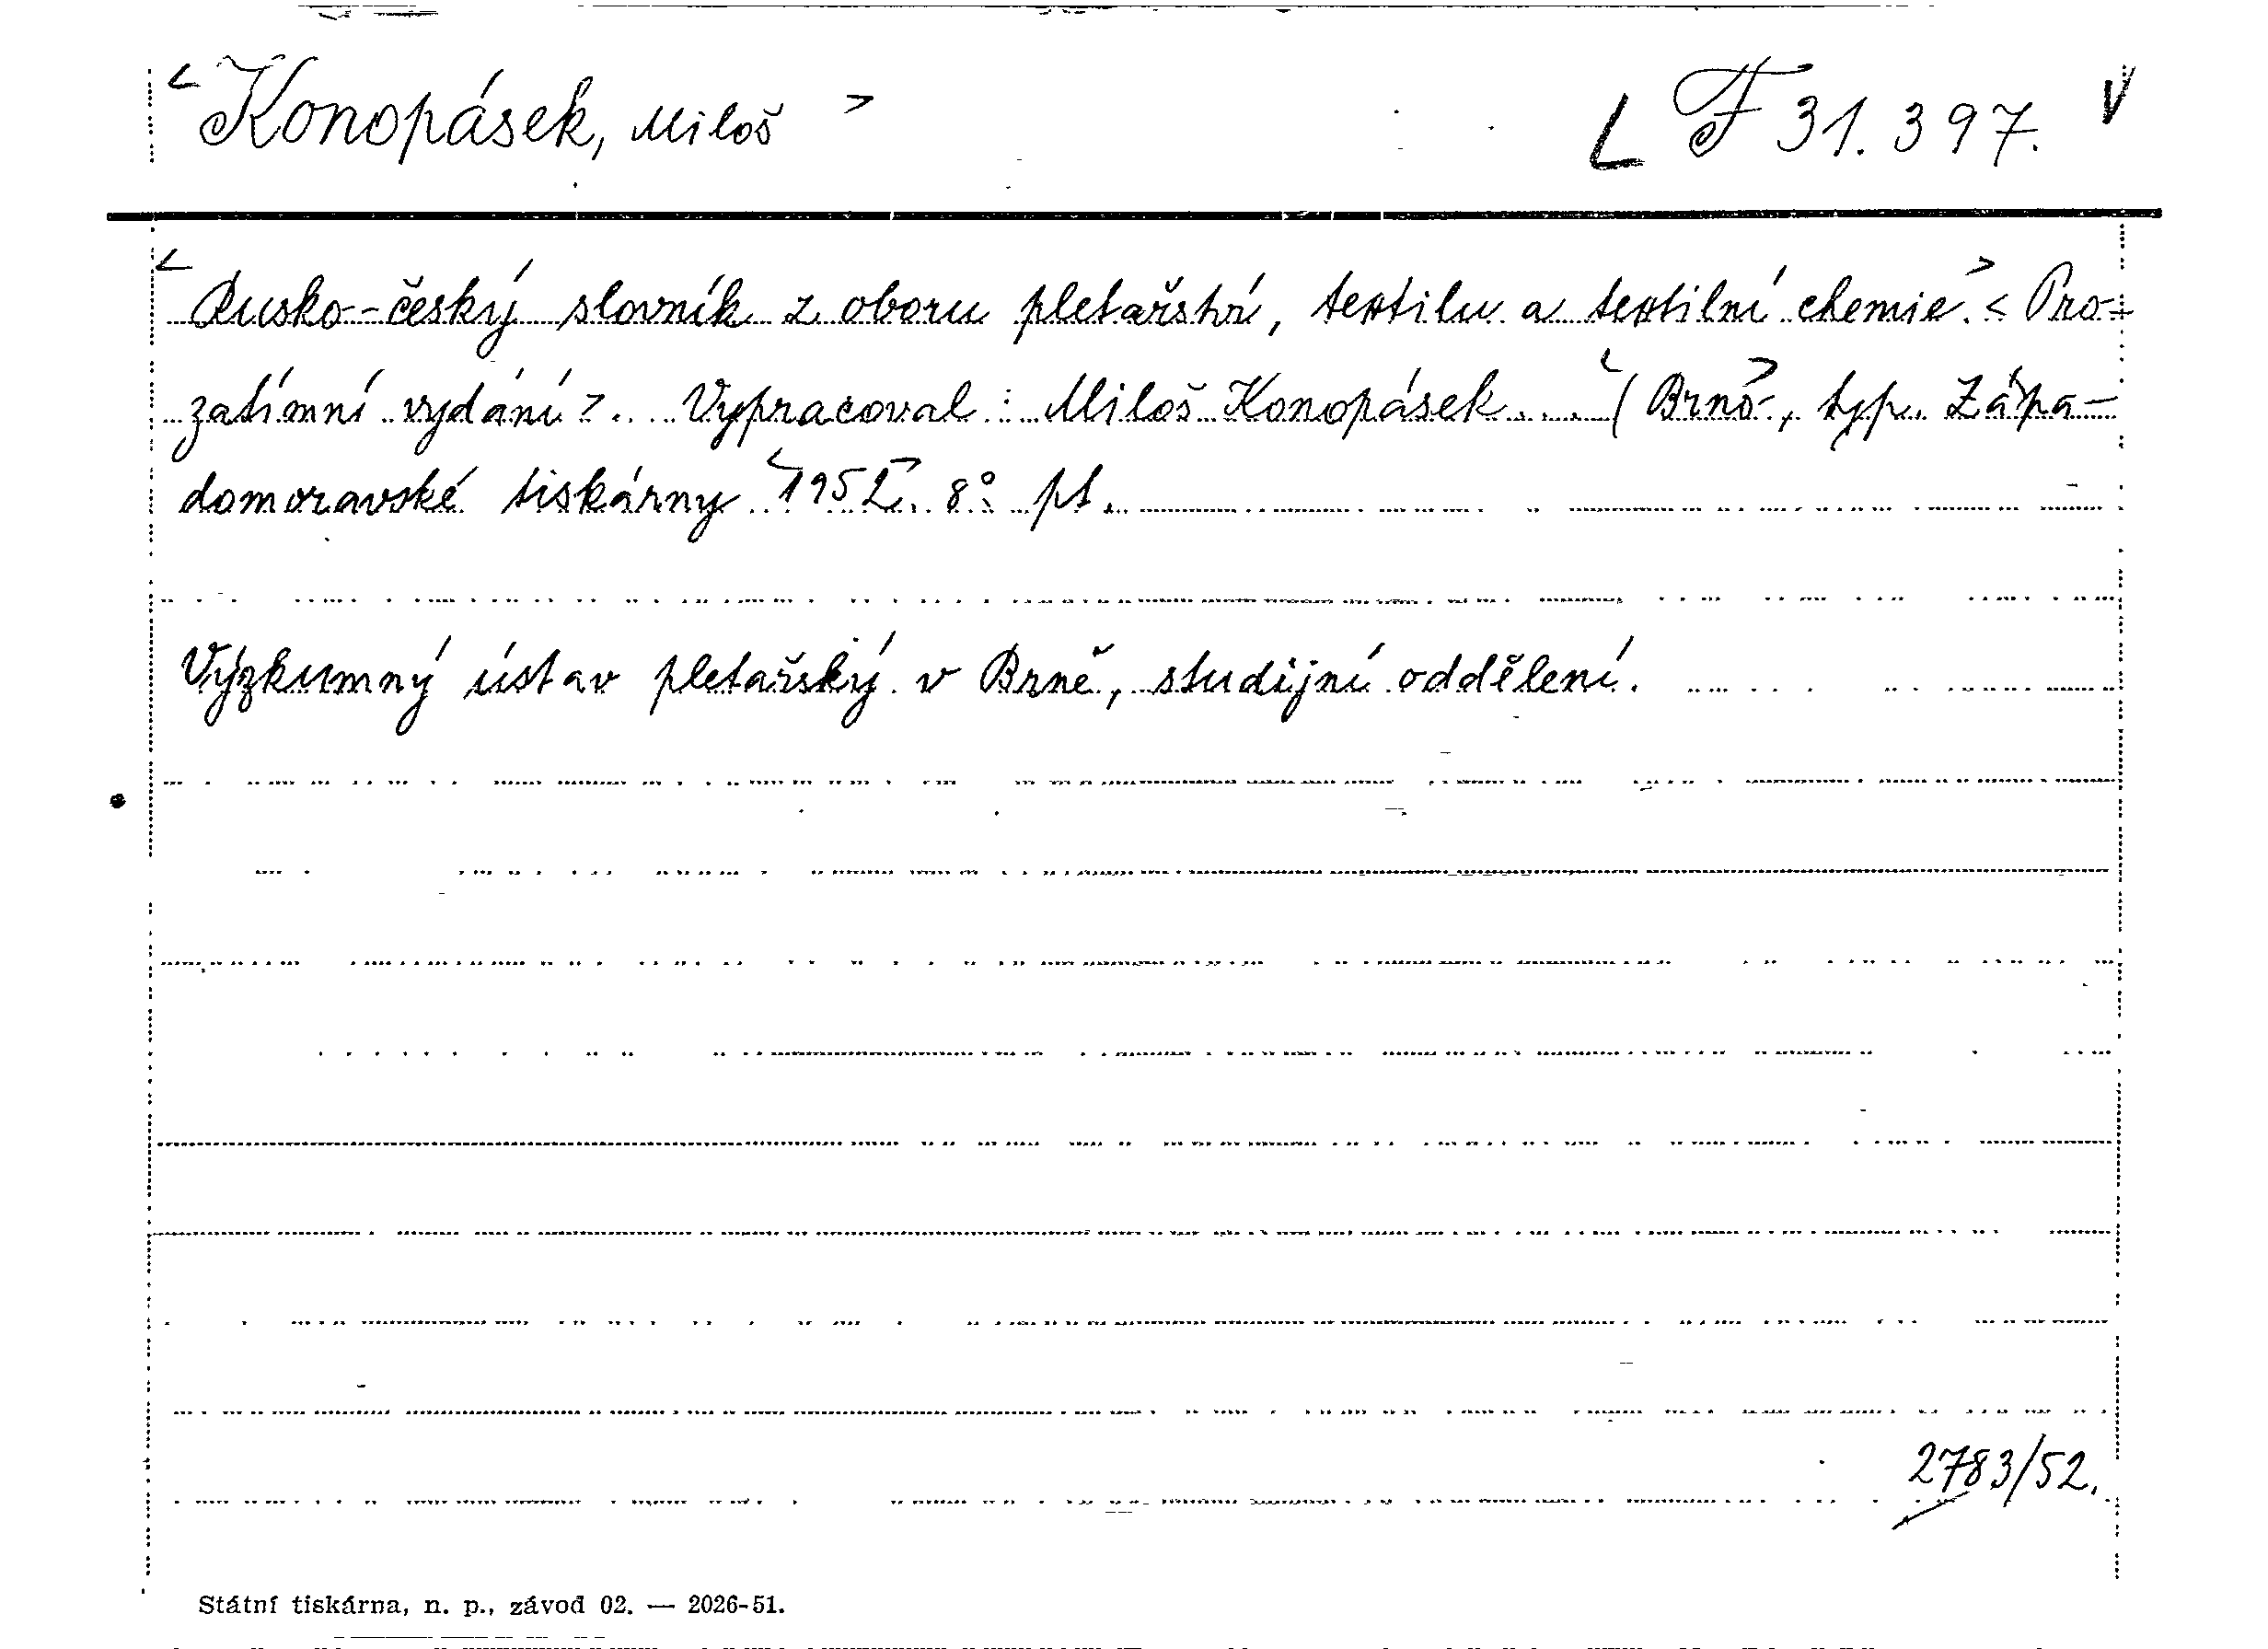 <Konopásek, Miloš> L F 31.397. V
<Rusko-český slovník z oboru pletařství, textilu a textilní chemie.> <Pro-
zatímní vydání>. Vypracoval: Miloš Konopásek... <(Brno>, typ. Zápa-
domoravské tiskárny <1952>. 8° pt.
Výzkumný ústav pletařský v Brně, studijní oddělení.
2783/52.
Státní tiskárna, n. p., závod 02. — 2026-51.